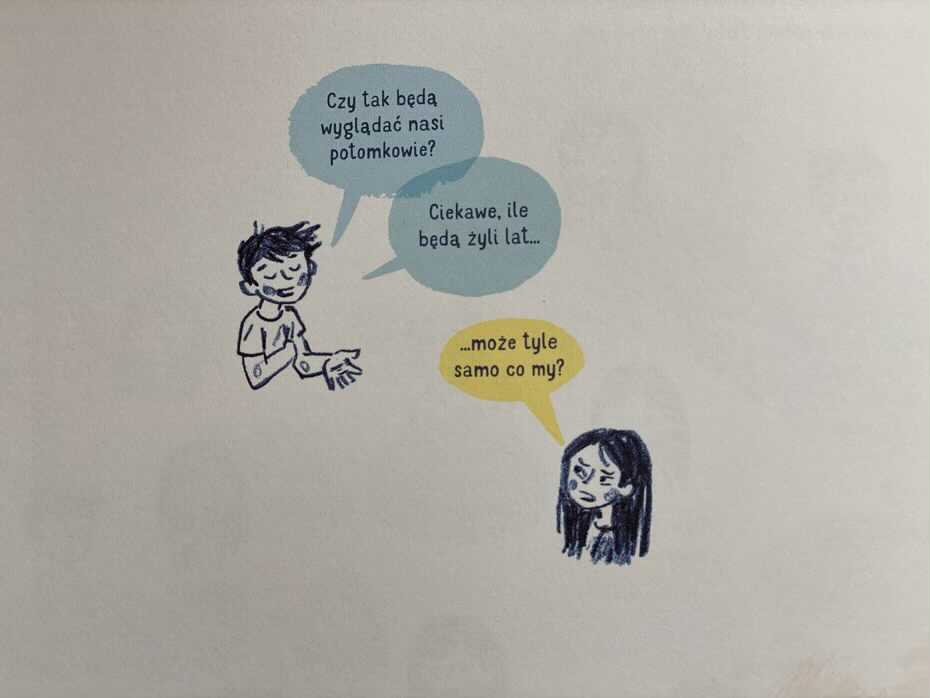 Czy tak będą
wyglądać nasi
potomkowie?
Ciekawe, ile
będą żyli lat...
...może tyle
samo co my?